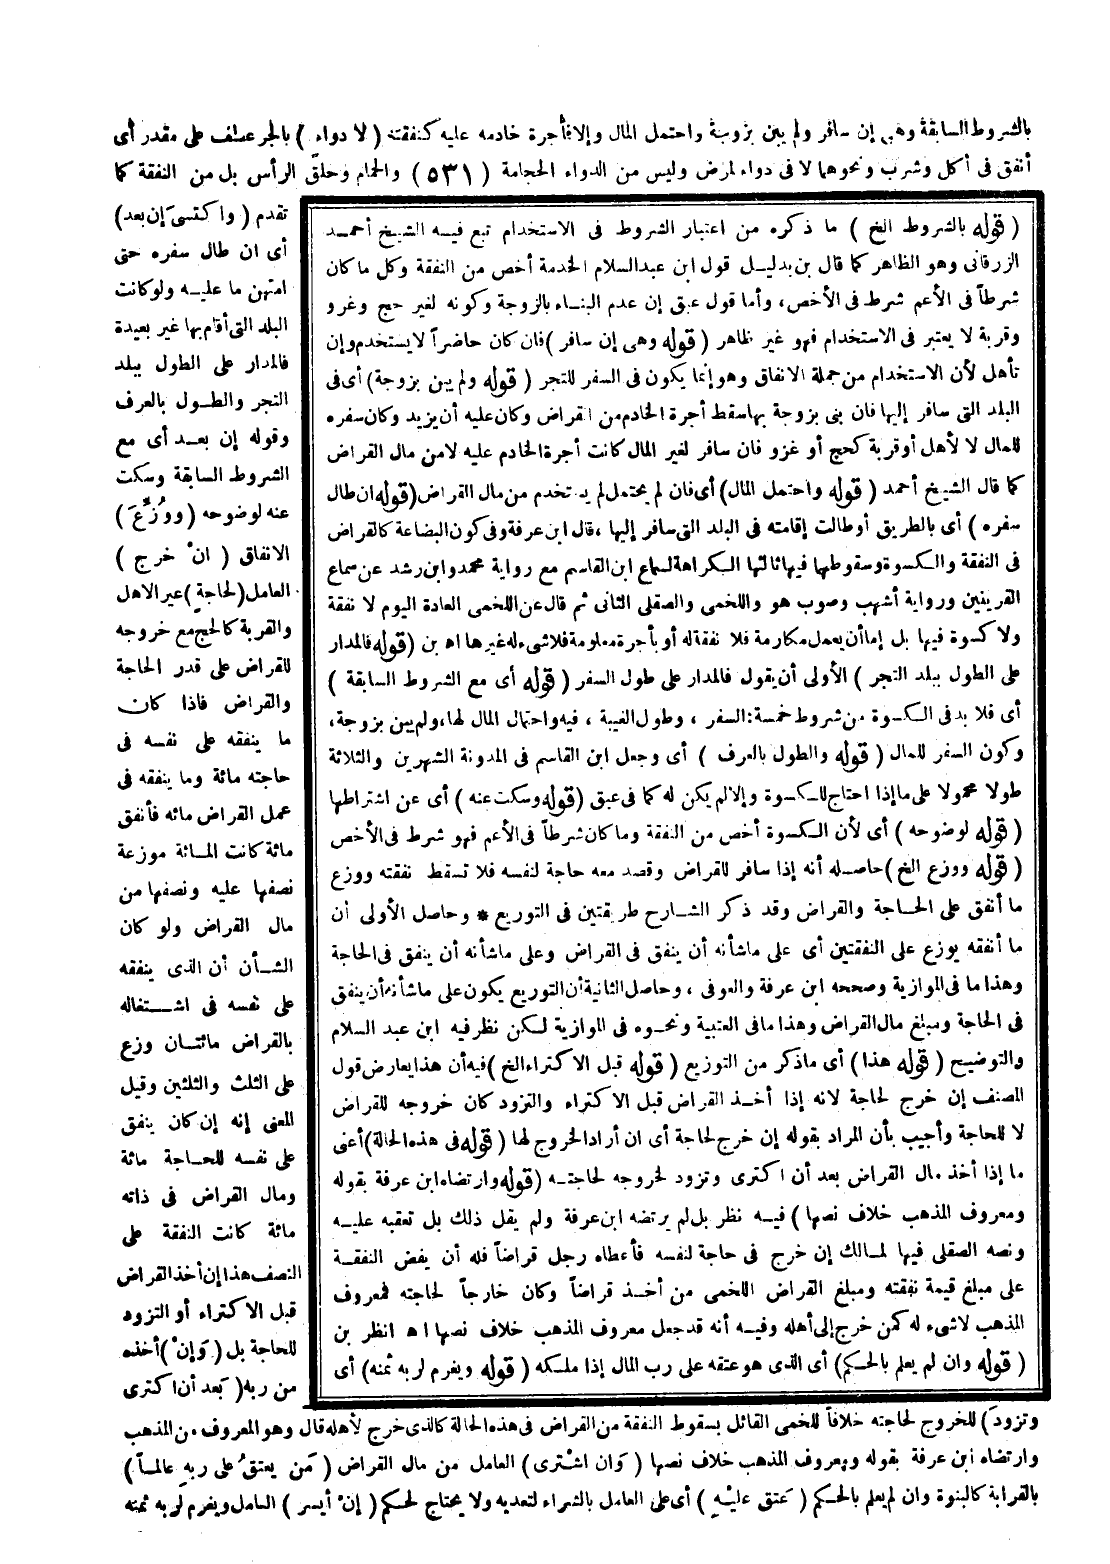 بالشروط السابقة وهى إن سافر ولم يبن بزوجة واحتمل المال وإلا فأجرة خادمه عليه كنفقته ( لا دواءٍ ) بالجر عطف على مقدر أى
أنفق فى أكل وشرب ونحوهما لا فى دواء لمرض وليس من الدواء الحجامة ( ٥٣١ ) والحمام وحلق الرأس بل من النفقة كما
تقدم ( واكتسى إن بعد )
أى ان طال سفره حتى
امتهن ما عليه ولو كانت
البلد التى أقام بها غير بعيدة
فالمدار على الطول ببلد
التجر والطول بالعرف
وقوله إن بعد أى مع
الشروط السابقة وسكت
عنه لوضوحه ( ووُزِّعَ )
الانفاق ( انْ خرج )
العامل ( لحاجةٍ ) غير الاهل
والقربة كالحج مع خروجه
للقراض على قدر الحاجة
والقراض فاذا كان
ما ينفقه على نفسه فى
حاجته مائة وما ينفقه فى
عمل القراض مائه فأنفق
مائة كانت المائة موزعة
نصفها عليه ونصفها من
مال القراض ولو كان
الشأن أن الذى ينفقه
على نفسه فى اشتغاله
بالقراض مائتان وزع
على الثلث والثلثين وقيل
المعنى إنه إن كان ينفق
على نفسه للحاجة مائة
ومال القراض فى ذاته
مائة كانت النفقة على
النصف هذا إن أخذ القراض
قبل الاكتراء أو التزود
للحاجة بل ( وَإنْ ) أخذه
من ربه ( بَعد أن اكترى
وتزودَ ) للخروج لحاجته خلافاً للخمى القائل بسقوط النفقة من القراض فى هذه الحالة كالذى خرج لأهله قال وهو المعروف من المذهب
وارتضاه ابن عرفة بقوله ومعروف المذهب خلاف نصها ( وَان اشْترى ) العامل من مال القراض ( مَن يعتقُ على ربه عالماً )
بالقرابة كالبنوة وان لم يعلم بالحكم ( عَتق عليْه ) أى على العامل بالشراء لتعديه ولا يحتاج لحكم ( إنْ أيسر ) العامل ويغرم لربه ثمنه
( قوله بالشروط الخ ) ما ذكره من اعتبار الشروط فى الاستخدام تبع فيه الشيخ أحمد
الزرقانى وهو الظاهر كما قال بن بدليل قول ابن عبد السلام الخدمة أخص من النفقة وكل ما كان
شرطاً فى الأعم شرط فى الأخص ، وأما قول عبق إن عدم البناء بالزوجة وكونه لغير حج وغزو
وقربة لا يعتبر فى الاستخدام فهو غير ظاهر ( قوله وهى إن سافر ) فان كان حاضراً لا يستخدم وإن
تأهل لأن الاستخدام من جملة الانفاق وهو إنما يكون فى السفر للتجر ( قوله ولم يبن بزوجة ) أى فى
البلد التى سافر إليها فان بنى بزوجة بها سقط أجرة الخادم من القراض وكان عليه أن يزيد وكان سفره
للمال لا لأهل أو قربة كحج أو غزو فان سافر لغير المال كانت أجرة الخادم عليه لا من مال القراض
كما قال الشيخ أحمد ( قوله واحتمل المال ) أى فان لم يحتمل لم يستخدم من مال القراض ( قوله ان طال
سفره ) أى بالطريق أو طالت إقامته فى البلد التى سافر إليها ، قال ابن عرفة وفى كون البضاعة كالقراض
فى النفقة والكسوة وسقوطها فيها ثالثها الكراهة لسماع ابن القاسم مع رواية محمد وابن رشد عن سماع
القرينين ورواية أشهب وصوب هو واللخمى والصقلى الثانى ثم قال عن اللخمى العادة اليوم لا نفقة
ولا كسوة فيها بل إما أن يعمل مكارمة فلا نفقة له أو بأجرة معلومة فلا شىء له غيرها اه بن ( قوله فالمدار
على الطول ببلد التجر ) الأولى أن يقول فالمدار على طول السفر ( قوله أى مع الشروط السابقة )
أى فلا بد فى الكسوة من شروط خمسة : السفر ، وطول الغيبة ، فيه واحتمال المال لها ، ولم يبن بزوجة ،
وكون السفر للمال ( قوله والطول بالعرف ) أى وجعل ابن القاسم فى المدونة الشهرين والثلاثة
طولا محمولا على ما إذا احتاج للكسوة وإلا لم يكن له كما فى عبق ( قوله وسكت عنه ) أى عن اشتراطها
( قوله لوضوحه ) أى لأن الكسوة أخص من النفقة وما كان شرطاً فى الأعم فهو شرط فى الأخص
( قوله ووزع الخ ) حاصله أنه إذا سافر للقراض وقصد معه حاجة لنفسه فلا تسقط نفقته ووزع
ما أنفق على الحاجة والقراض وقد ذكر الشارح طريقتين فى التوزيع * وحاصل الأولى أن
ما أنفقه يوزع على النفقتين أى على ماشأنه أن ينفق فى القراض وعلى ماشأنه أن ينفق فى الحاجة
وهذا ما فى الموازية وصححه ابن عرفة والعوفى ، وحاصل الثانية أن التوزيع يكون على ماشأنه أن ينفق
فى الحاجة ومبلغ مال القراض وهذا ما فى العتبية ونحوه فى الموازية لكن نظر فيه ابن عبد السلام
والتوضيح ( قوله هذا ) أى ماذكر من التوزيع ( قوله قبل الاكتراء الخ ) فيه أن هذا يعارض قول
المصنف إن خرج لحاجة لانه إذا أخذ القراض قبل الاكتراء والتزود كان خروجه للقراض
لا للحاجة وأجيب بأن المراد بقوله إن خرج لحاجة أى ان أراد الخروج لها ( قوله فى هذه الحالة ) أعنى
ما إذا أخذ مال القراض بعد أن اكترى وتزود لخروجه لحاجته ( قوله وارتضاه ابن عرفة بقوله
ومعروف المذهب خلاف نصها ) فيه نظر بل لم يرتضه ابن عرفة ولم يقل ذلك بل تعقبه عليه
ونصه الصقلى فيها لمالك إن خرج فى حاجة لنفسه فأعطاه رجل قراضاً فله أن يفض النفقة
على مبلغ قيمة نفقته ومبلغ القراض اللخمى من أخذ قراضاً وكان خارجاً لحاجته فمعروف
المذهب لاشىء له كمن خرج إلى أهله وفيه أنه قد جعل معروف المذهب خلاف نصها اه انظر بن
( قوله وان لم يعلم بالحكم ) أى الذى هو عتقه على رب المال إذا ملكه ( قوله ويغرم لربه ثمنه ) أى